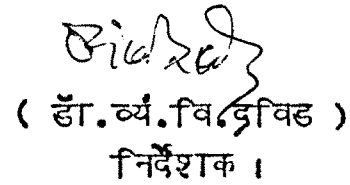 ( डॉ.व्यं.वि.द्रविड )
निर्देशक ।